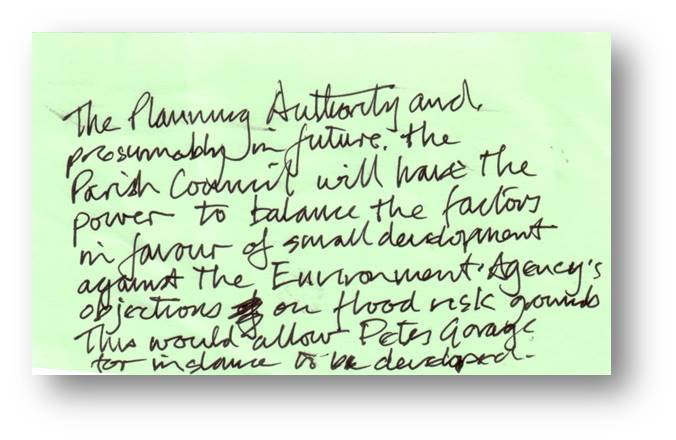 The Planning Authority and,
presumably in future. the
Parish Council will have the
power to balance the factors
in favour of small development
against the Environment Agency's
objections on flood risk grounds
This would allow Petes Garage
for instance to be developed.